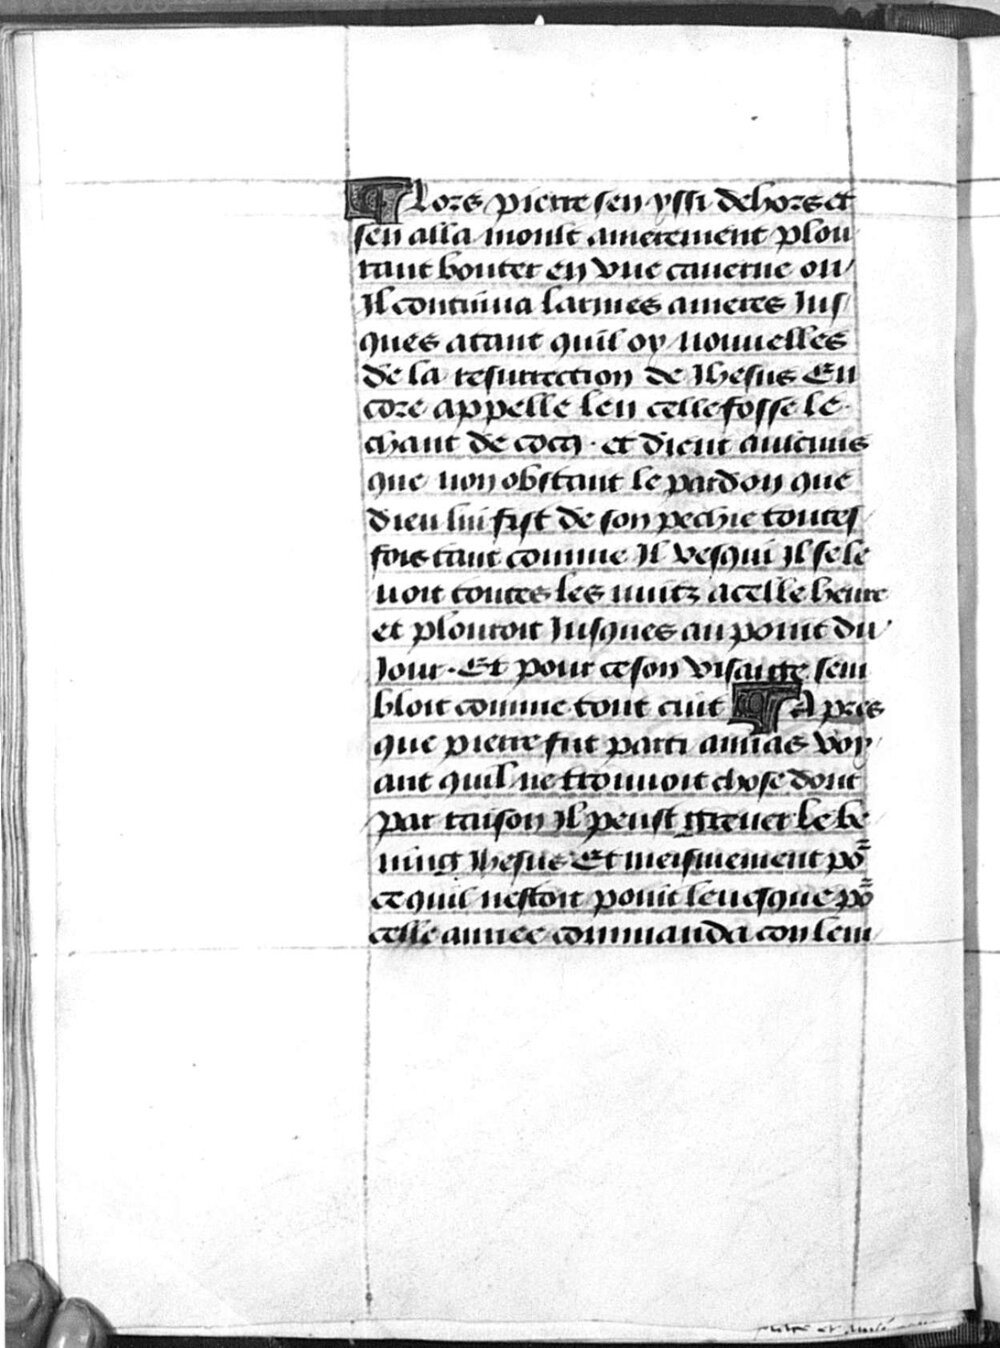 Alors pierre sen yssi dehors et
sen alla moult amerement plou
rant bouter en vne cauerne ou
Il continua larmes ameres Jus
ques atant quil oy nouuelles
de la resurrection de Jhesus En
core appelle len celle fosse le
chant de cocq · et dient aucuns
que non obstant le pardon que
dieu lui fist de son pechie toutes
fois tant comme Il vesqui Il se le
uoit toutes les nuitz acelle heure
et plouroit Jusques au point du
Jour · Et pour ce son visaige sem
bloit comme tout cuit Apres
que pierre fut parti annas voy
ant quil ne trouuoit chose dont
par raison Il peust greuer le be
ning Jhesus Et meismement po᷑
ce quil nestoit point leuesque po᷑
celle annee commanda con lem